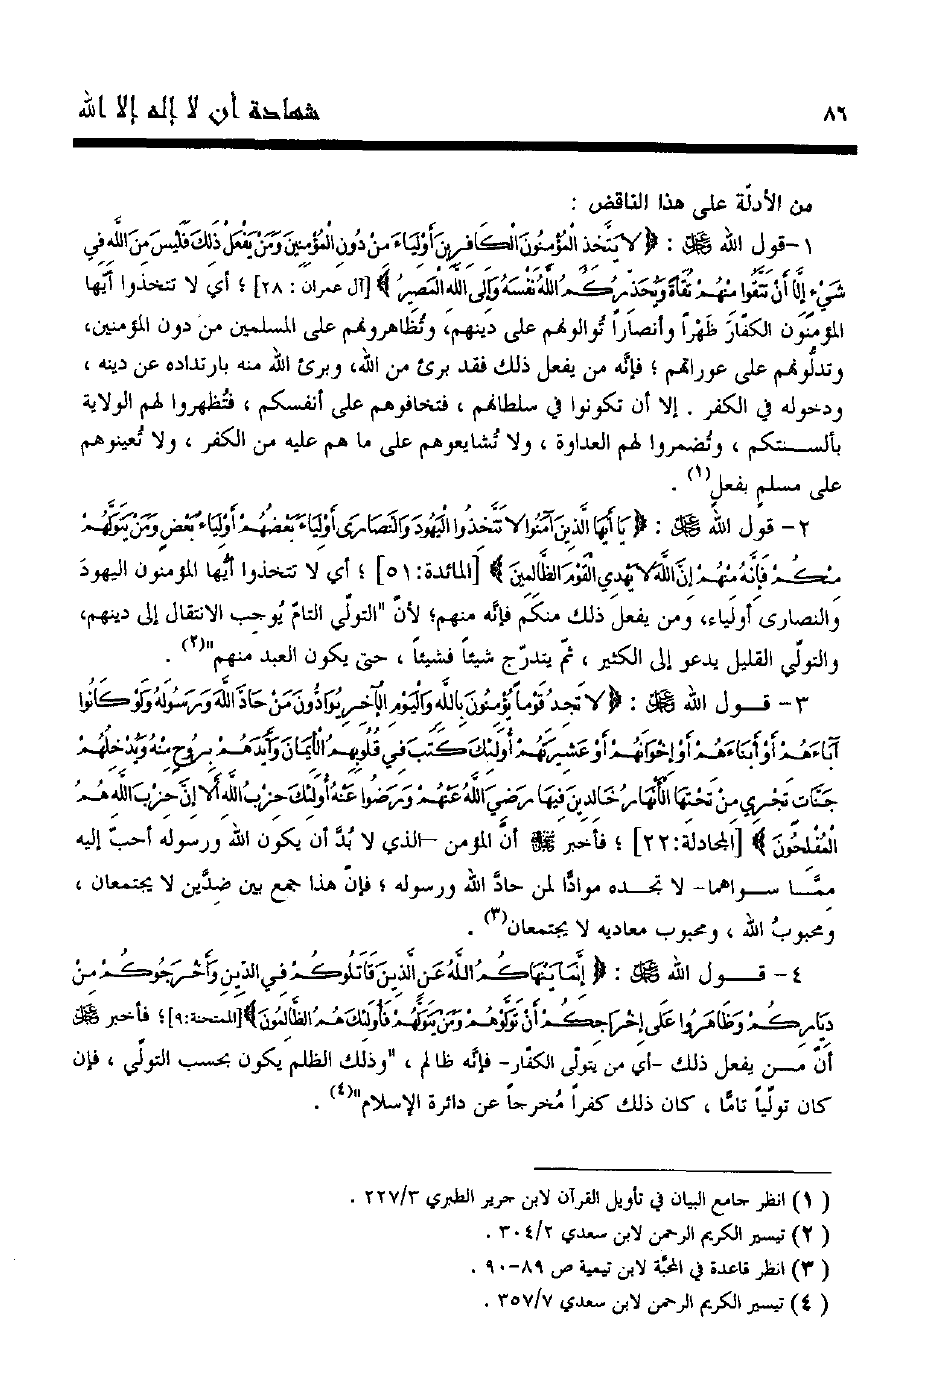 ٨٦ شهادة أن لا إله إلا الله
من الأدلّة على هذا الناقض :
١-قول الله ﷻ : ﴿ لا يَتَّخِذِ الْمُؤْمِنُونَ الْكَافِرِينَ أَوْلِيَاءَ مِنْ دُونِ الْمُؤْمِنِينَ وَمَنْ يَفْعَلْ ذَلِكَ فَلَيْسَ مِنَ اللَّهِ فِي
شَيْءٍ إِلَّا أَنْ تَتَّقُوا مِنْهُمْ تُقَاةً وَيُحَذِّرُكُمُ اللَّهُ نَفْسَهُ وَإِلَى اللَّهِ الْمَصِيرُ ﴾ [آل عمران : ٢٨] ؛ أي لا تتخذوا أيّها
المؤمنون الكفّارَ ظَهْراً وأنصاراً تُوالونهم على دينهم، وتُظاهرونهم على المسلمين من دون المؤمنين،
وتدلُّونهم على عوراتهم ؛ فإنّه من يفعل ذلك فقد برئ من الله، وبرئ الله منه بارتداده عن دينه ،
ودخوله في الكفر . إلا أن تكونوا في سلطانهم ، فتخافوهم على أنفسكم ، فتُظهروا لهم الولاية
بألســنتكم ، وتُضمروا لهم العداوة ، ولا تُشايعوهم على ما هم عليه من الكفر ، ولا تُعينوهم
على مسلمٍ بفعلٍ(١) .
٢- قول الله ﷻ : ﴿ يَا أَيُّهَا الَّذِينَ آمَنُوا لا تَتَّخِذُوا الْيَهُودَ وَالنَّصَارَى أَوْلِيَاءَ بَعْضُهُمْ أَوْلِيَاءُ بَعْضٍ وَمَنْ يَتَوَلَّهُمْ
مِنْكُمْ فَإِنَّهُ مِنْهُمْ إِنَّ اللَّهَ لا يَهْدِي الْقَوْمَ الظَّالِمِينَ ﴾ [المائدة:٥١] ؛ أي لا تتخذوا أيُّها المؤمنون اليهودَ
والنصارى أولياء، ومن يفعل ذلك منكم فإنّه منهم؛ لأنّ "التولّي التامّ يُوجب الانتقال إلى دينهم،
والتولّي القليل يدعو إلى الكثير ، ثمّ يتدرّج شيئاً فشيئاً ، حتى يكون العبد منهم"(٢) .
٣- قــول الله ﷻ : ﴿ لا تَجِدُ قَوْماً يُؤْمِنُونَ بِاللَّهِ وَالْيَوْمِ الْآخِرِ يُوَادُّونَ مَنْ حَادَّ اللَّهَ وَرَسُولَهُ وَلَوْ كَانُوا
آبَاءَهُمْ أَوْ أَبْنَاءَهُمْ أَوْ إِخْوَانَهُمْ أَوْ عَشِيرَتَهُمْ أُولَئِكَ كَتَبَ فِي قُلُوبِهِمُ الْأِيمَانَ وَأَيَّدَهُمْ بِرُوحٍ مِنْهُ وَيُدْخِلُهُمْ
جَنَّاتٍ تَجْرِي مِنْ تَحْتِهَا الْأَنْهَارُ خَالِدِينَ فِيهَا رَضِيَ اللَّهُ عَنْهُمْ وَرَضُوا عَنْهُ أُولَئِكَ حِزْبُ اللَّهِ أَلا إِنَّ حِزْبَ اللَّهِ هُمُ
الْمُفْلِحُونَ ﴾ [المجادلة:٢٢] ؛ فأخبر ﷻ أنَّ المؤمن -الذي لا بُدَّ أن يكون الله ورسوله أحبّ إليه
ممَّــا ســواهما- لا تجــده موادًّا لمن حادَّ الله ورسوله ؛ فإنّ هذا جمع بين ضدَّين لا يجتمعان ،
ومحبوبُ الله ، ومحبوب معاديه لا يجتمعان(٣) .
٤- قــول الله ﷻ : ﴿ إِنَّمَا يَنْهَاكُمُ اللَّهُ عَنِ الَّذِينَ قَاتَلُوكُمْ فِي الدِّينِ وَأَخْرَجُوكُمْ مِنْ
دِيَارِكُمْ وَظَاهَرُوا عَلَى إِخْرَاجِكُمْ أَنْ تَوَلَّوْهُمْ وَمَنْ يَتَوَلَّهُمْ فَأُولَئِكَ هُمُ الظَّالِمُونَ ﴾[الممتحنة:٩]؛ فأخبر ﷻ
أنّ مــن يفعل ذلك -أي من يتولّى الكفّار- فإنّه ظالم ، "وذلك الظلم يكون بحسب التولّي ، فإن
كان تولّياً تامًّا ، كان ذلك كفراً مُخرجاً عن دائرة الإسلام"(٤) .
( ١) انظر جامع البيان في تأويل القرآن لابن جرير الطبري ٢٢٧/٣ .
( ٢) تيسير الكريم الرحمن لابن سعدي ٣٠٤/٢ .
( ٣) انظر قاعدة في المحبّة لابن تيمية ص ٨٩-٩٠ .
( ٤) تيسير الكريم الرحمن لابن سعدي ٣٥٧/٧ .